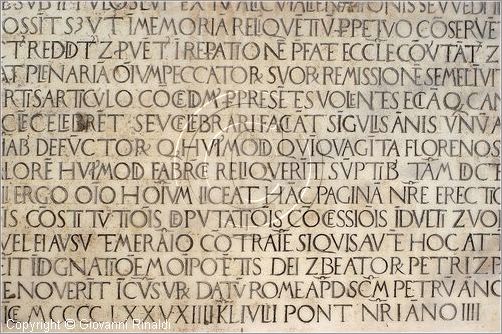 OSSIT SƷ VT I MEMORIA RELIQVETIV PPETVO COSERVE
T REDDT Z PVET I REPATIONE PFATE ECCLE COVTAT Z
AT PLENARIA OIVM PECCATOR SVOR REMISSIONE SEMEL IVI
RTIS ARTICVLO COCED M PRESETES VOLENTES EC A Q CA
CELEBRET SEV CELEBRARI FACAT SIGVLIS ANIS VNV
IAB DEFVCTOR Q HVIMOD QVI QVAGITA FLORENOS
LORE HVIMOD FABRCE RELIQVERIT SVPTIB TAM DCT
ERGO OIO HOIVM LICEAT HAC PAGINA NRE ERECTI
IS COSTITVTIOIS DPVTATOIS COCESSIOIS IDVLTI Z VO
VEL EI AVSV TEMERAIO COTRAIE SI QVIS AVTE HOC AT
ITI IDGNATIOEM OIPOTETIS DEI Z BEATOR PETRI Z P
ENOVERIT ICVSVR DATV ROME APD SCM PETRV ANO
CE M CCCC LXXXXIIII KL IVLII PONT NRI ANO IIII
copyright © - Giovanni Rinaldi